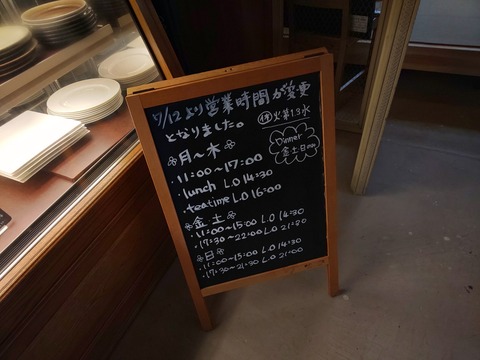 7/12より営業時間が変更
となりました。
㊡火、第1.3水
Dinner
金土日のみ
※月〜木※
・11:00〜17:00
・lunch L.O 14:30
・teatime L.O 16:00
※金 土※
・11:00〜15:00 L.O 14:30
・17:30〜22:00 L.O 21:30
※日※
・11:00〜15:00 L.O 14:30
・17:30〜21:30 L.O 21:00